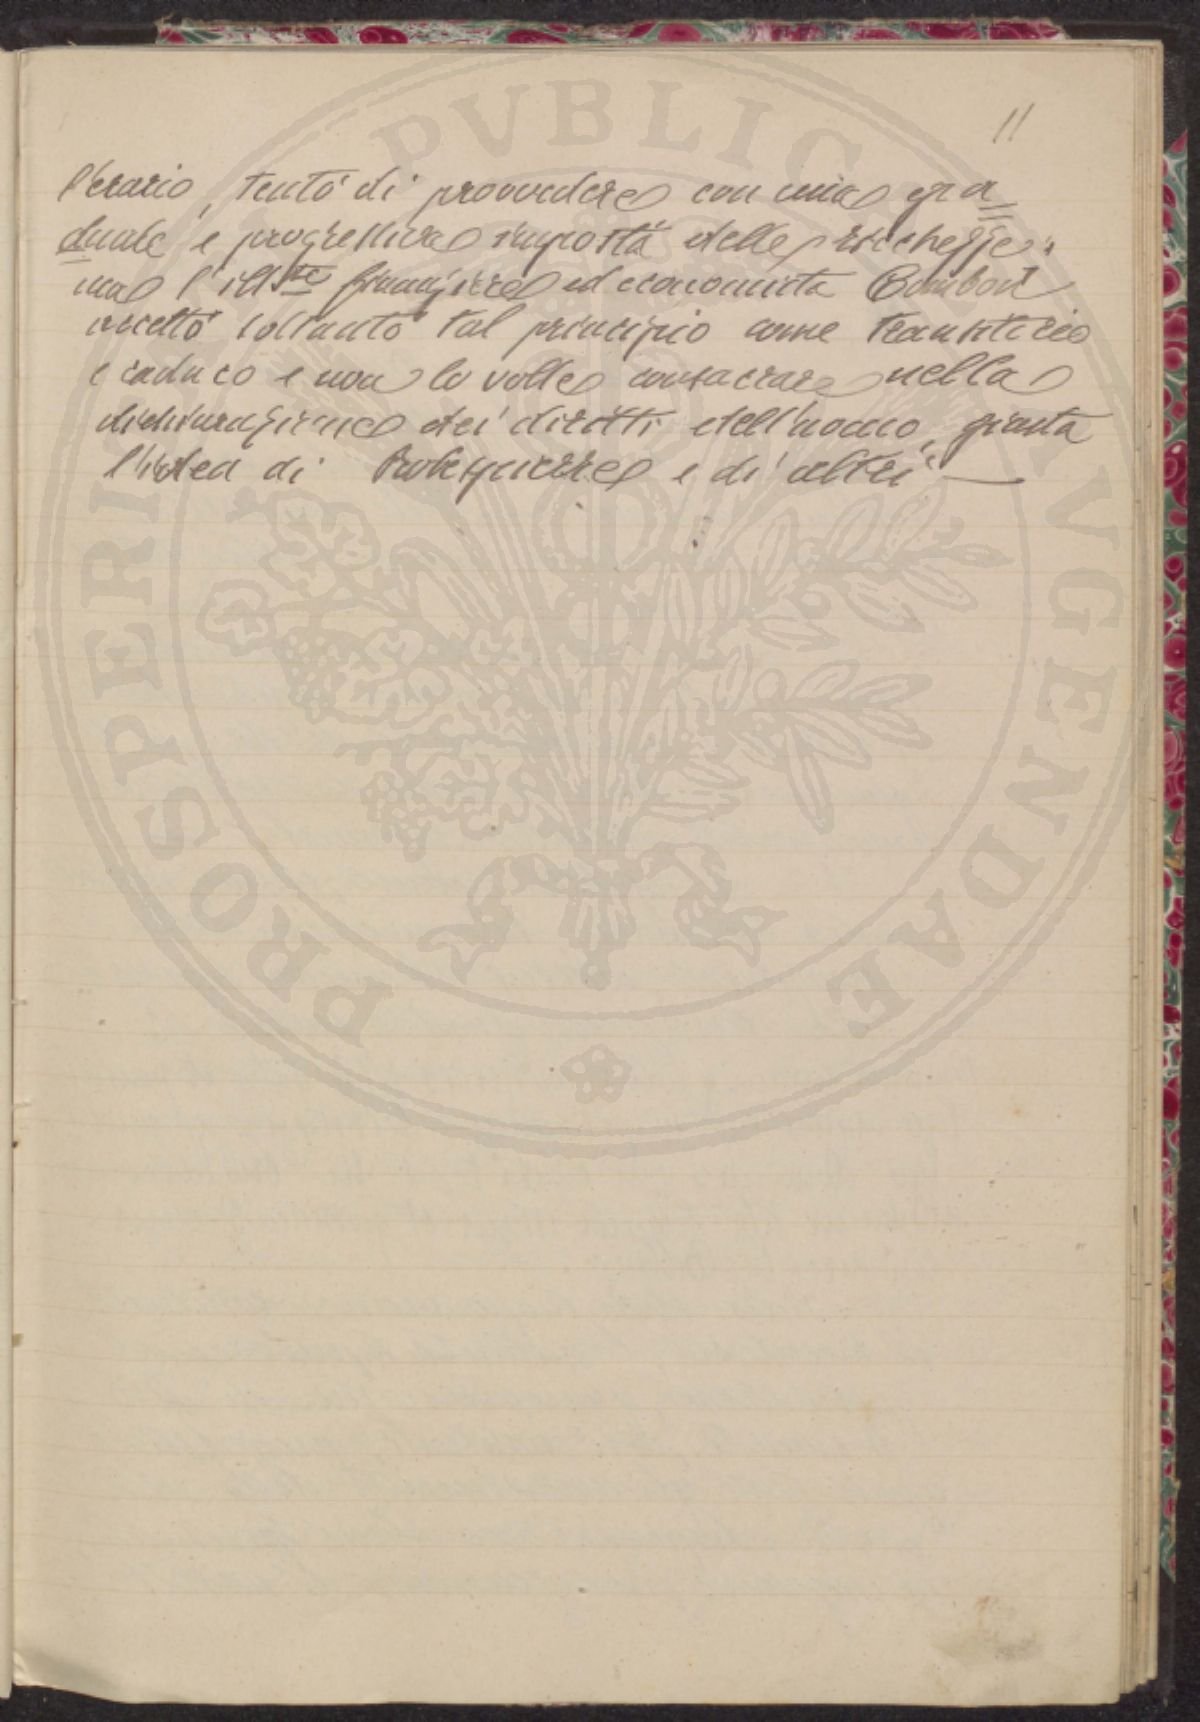 11
l'erario, tentò di provvedere con una gra
duale e progressiva imposta delle ricchezze:
ma l'ill.te finanziere ed economista Cambon
accettò soltanto tal principio come transitorio
e caduco e non lo volle consacrare nella
dichiarazione dei diritti dell'uomo, giusta
l'idea di Robespierre e di altri —
PROSPERITATI PVBLICAE AVGENDAE